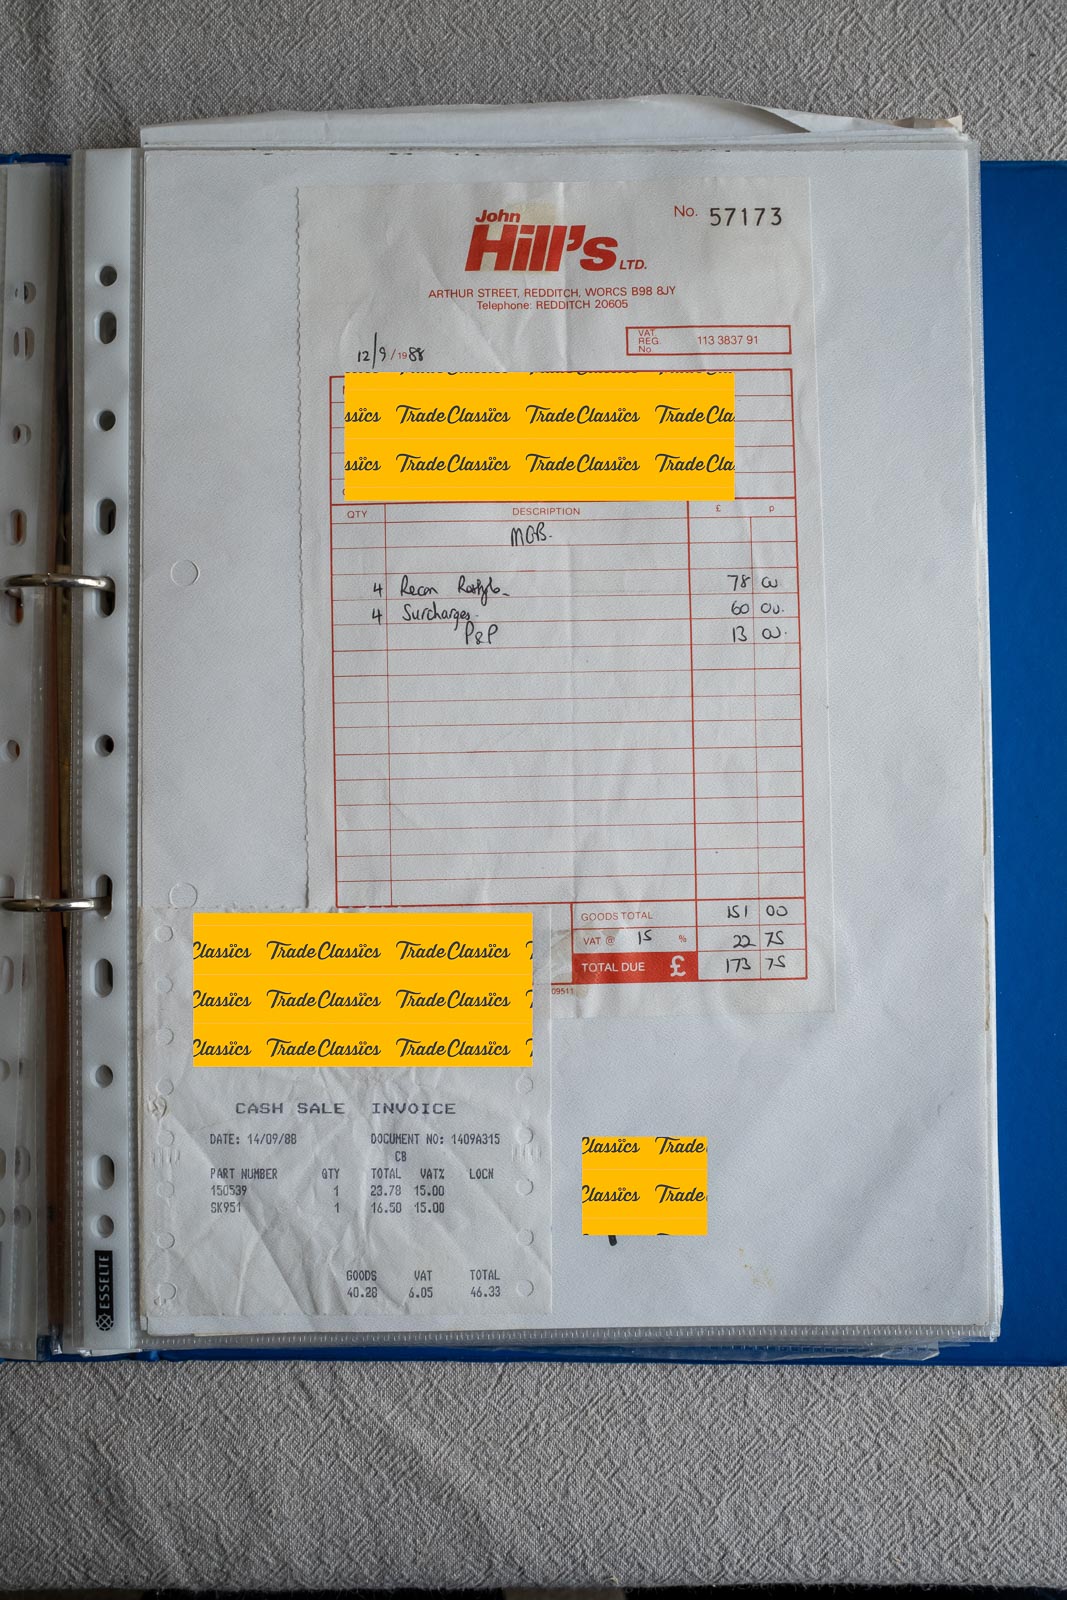 No. 57173
John
Hill's LTD.
ARTHUR STREET, REDDITCH, WORCS B98 8JY
Telephone: REDDITCH 20605
VAT. REG. No 113 3837 91
12/9/1988
Trade Classics Trade Classics Trade Cla
ssics Trade Classics Trade Classics Trade Cla
ssics Trade Classics Trade Classics Trade Cla
QTY DESCRIPTION £ p
MGB.
4 Recon Rostyle 78 00
4 Surcharges. 60 00.
P&P 13 00.
GOODS TOTAL 151 00
VAT @ 15 % 22 75
TOTAL DUE £ 173 75
09511
Classics Trade Classics Trade Classics T
Classics Trade Classics Trade Classics T
Classics Trade Classics Trade Classics T
CASH SALE INVOICE
DATE: 14/09/88 DOCUMENT NO: 1409A315
CB
PART NUMBER QTY TOTAL VAT% LOCN
150539 1 23.78 15.00
SK951 1 16.50 15.00
GOODS VAT TOTAL
40.28 6.05 46.33
Classics Trade
Classics Trade
ESSELTE